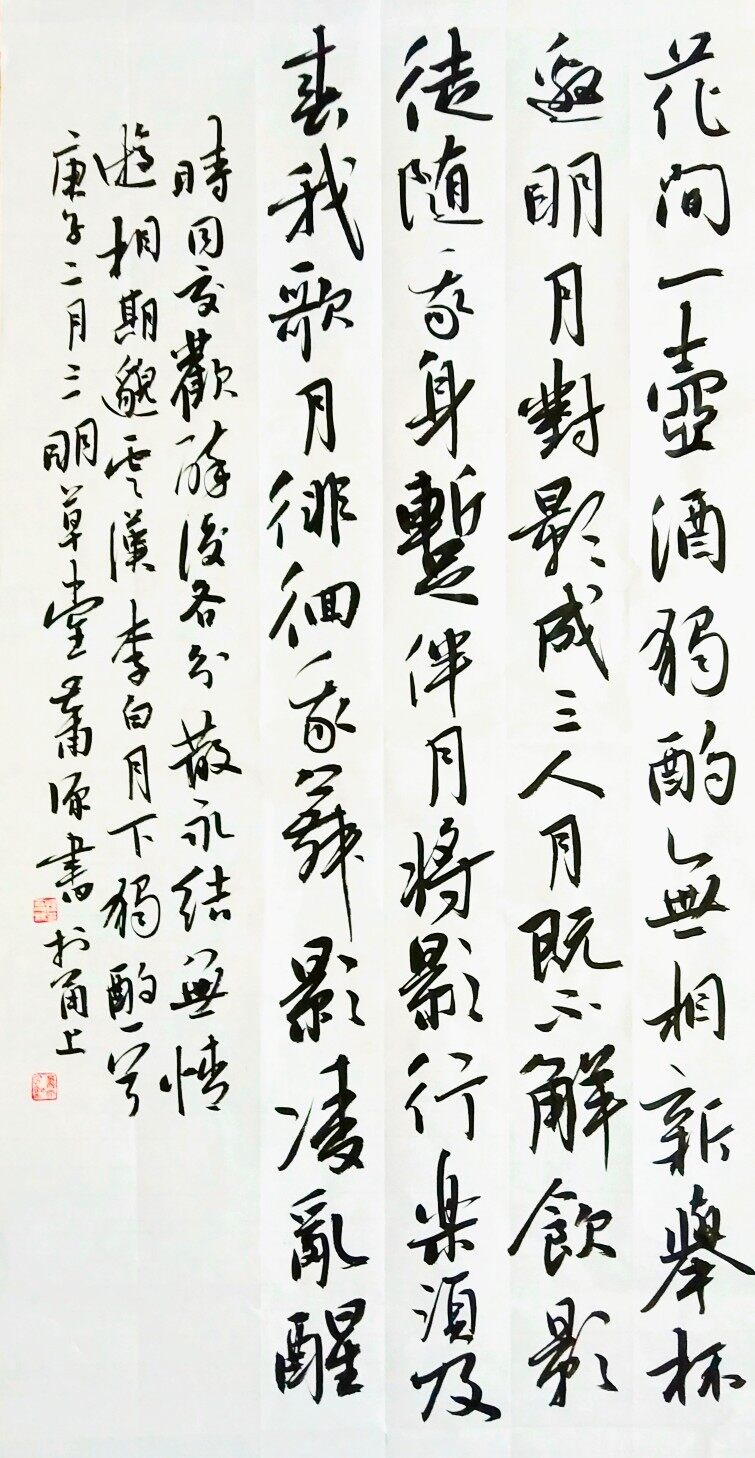 花間一壺酒獨酌無相新舉杯
邀明月對影成三人月既不解飲影
徒随我身暫伴月將影行樂須及
春我歌月徘徊我舞影凌亂醒
時同交歡醉後各分散永結無情
遊相期邈雲漢李白月下獨酌一首
庚子二月三明草堂蕭源書於甬上